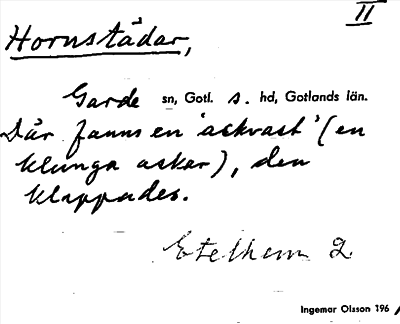 II
Hornstädar,
Garde sn, Gotl. s. hd, Gotlands län.
Där fanns en 'askvast' (en
klunga askar), den
klappades.
Etelhem 2
Ingemar Olsson 196